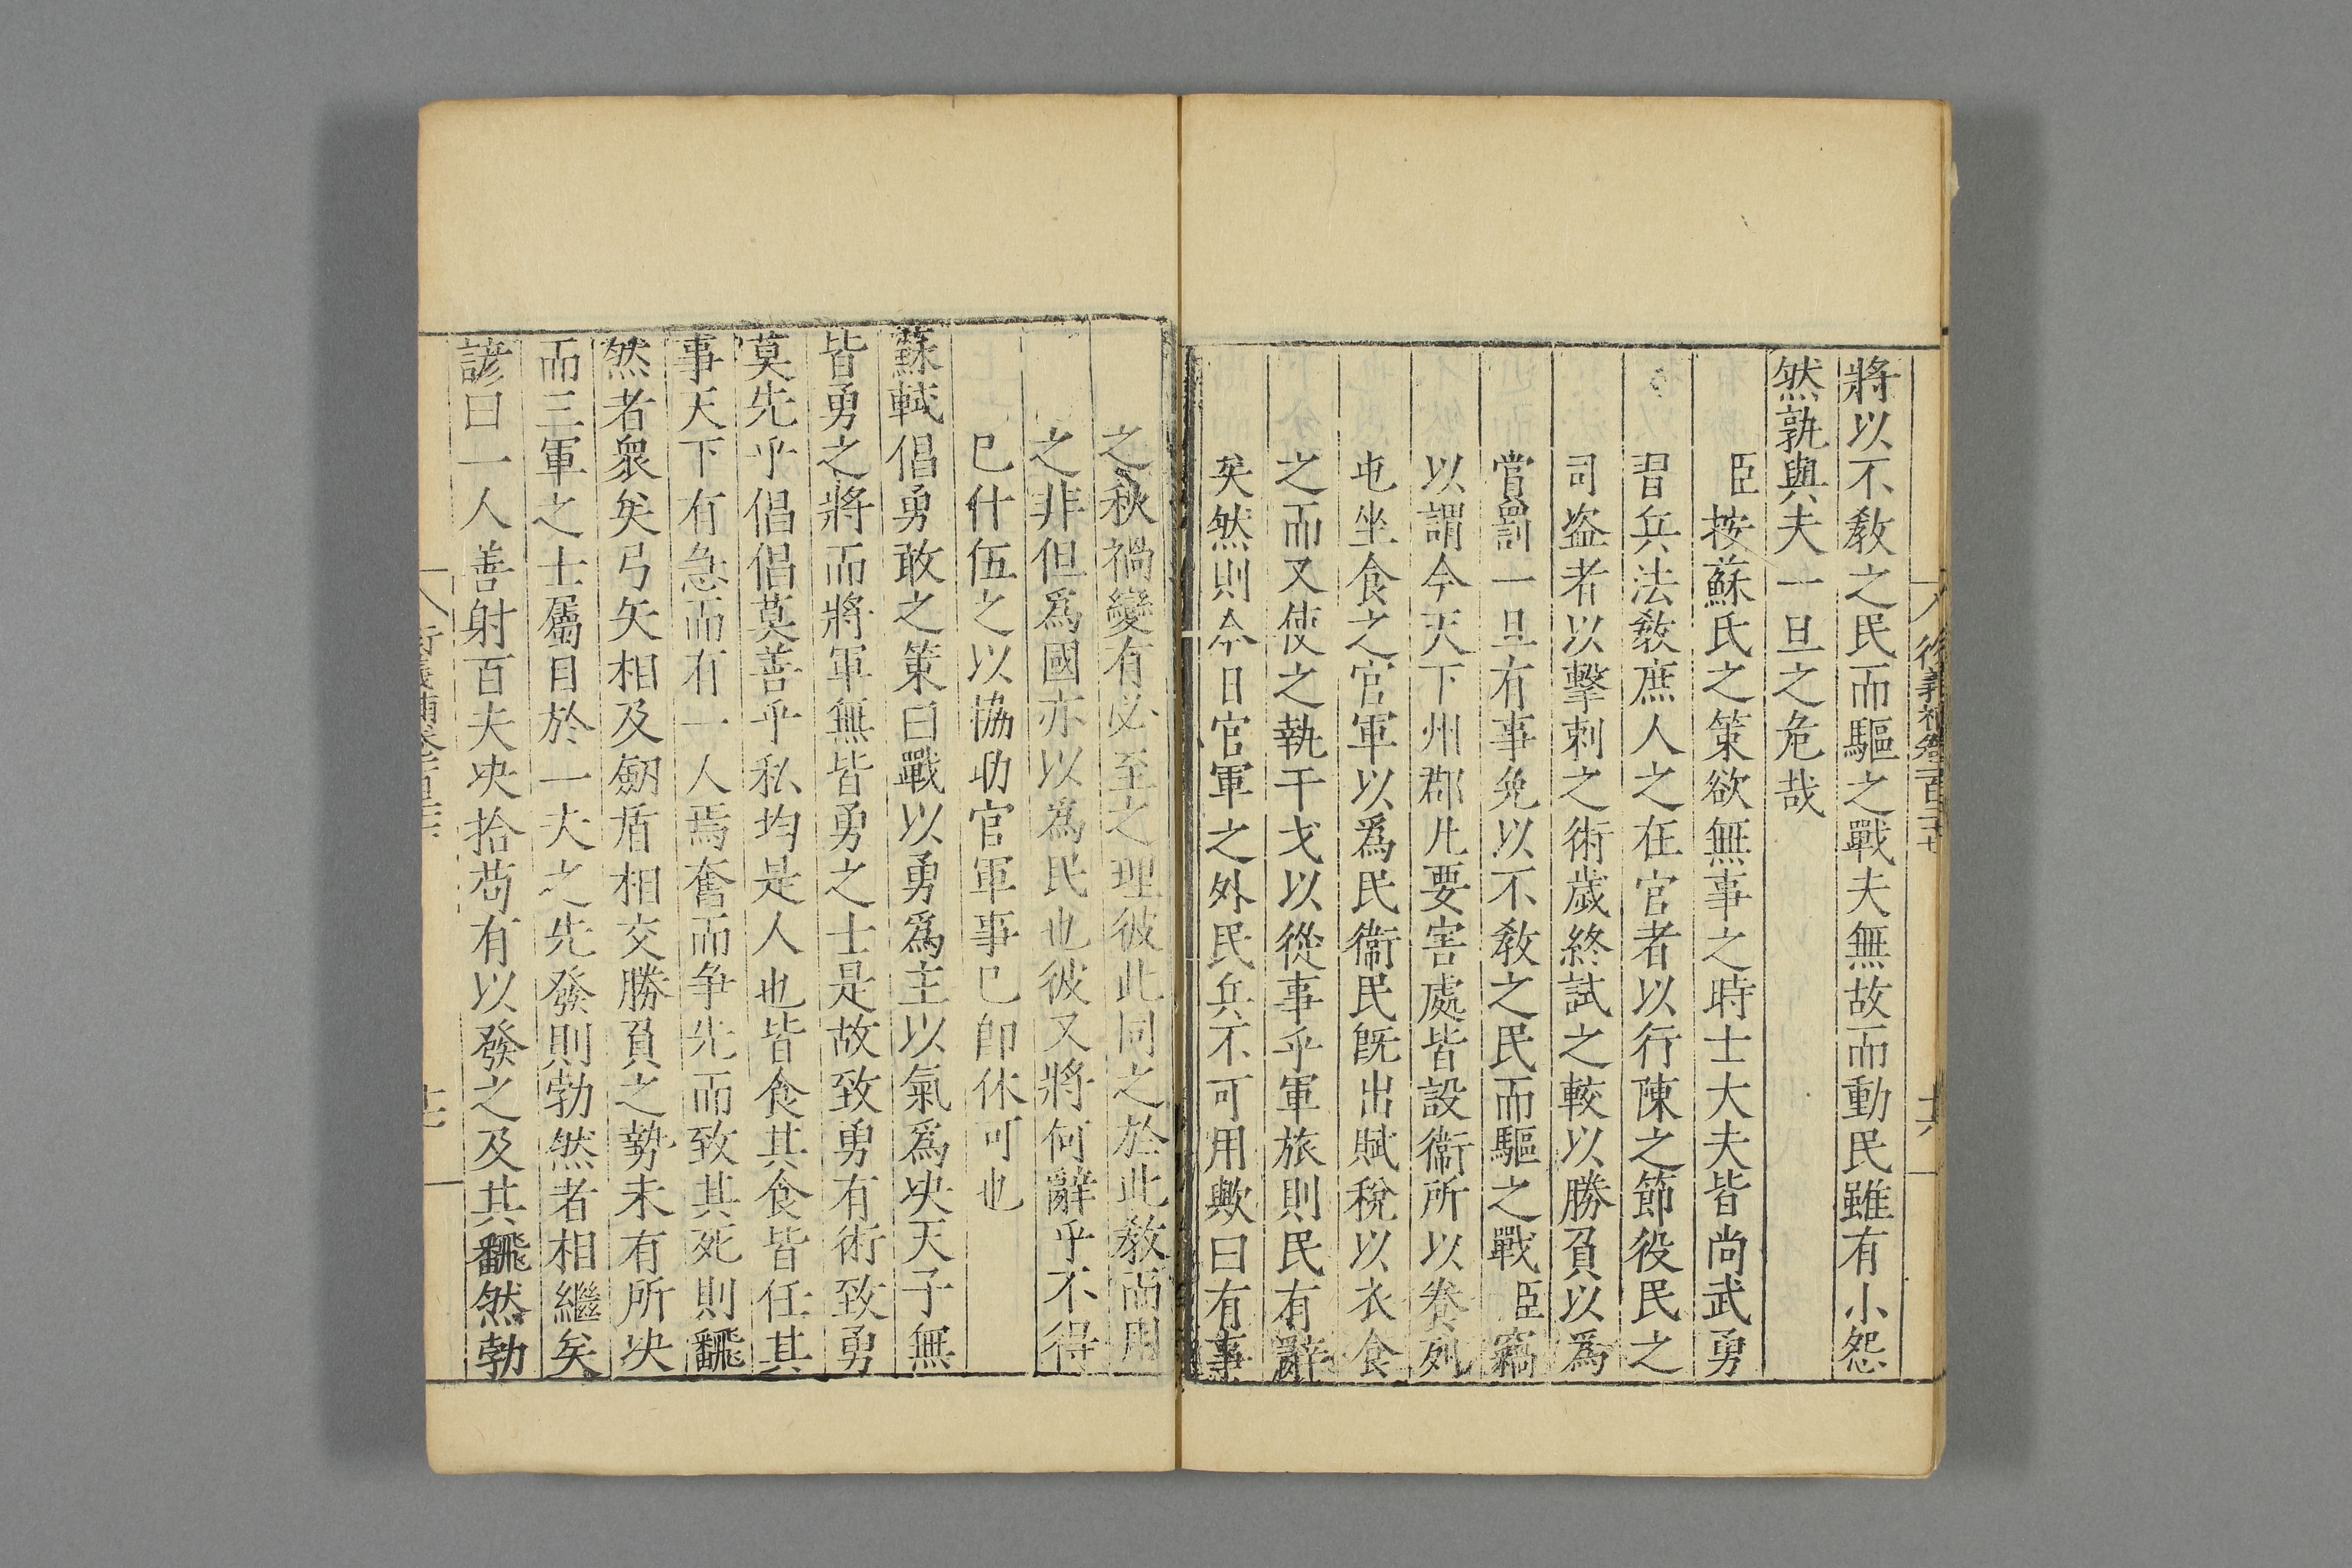 將以不敎之民而驅之戰夫無故而動民雖有小怨
然孰與夫一旦之危哉
臣按蘇氏之策欲無事之時士大夫皆尚武勇
習兵法敎庶人之在官者以行陳之節役民之
司盗者以擊刺之術歲終試之較以勝負以爲
賞罰一旦有事免以不敎之民而驅之戰臣竊
以謂今天下州郡凡要害處皆設衞所以養列
屯坐食之官軍以爲民衞民既出賦稅以衣食
之而又使之執干戈以從事乎軍旅則民有辭
矣然則今日官軍之外民兵不可用歟曰有事
之秋禍變有必至之理彼此同之於此敎而用
之非但爲國亦以爲民也彼又將何辭乎不得
已什伍之以協助官軍事已卽休可也
蘇軾倡勇敢之策曰戰以勇爲主以氣爲决天子無
皆勇之將而將軍無皆勇之士是故致勇有術致勇
莫先乎倡倡莫善乎私均是人也皆食其食皆任其
事天下有急而有一人焉奮而争先而致其死則飜
然者衆矣弓矢相及劒盾相交勝負之勢未有所决
而三軍之士屬目於一夫之先發則勃然者相繼矣
諺曰一人善射百夫决拾苟有以發之及其飜然勃